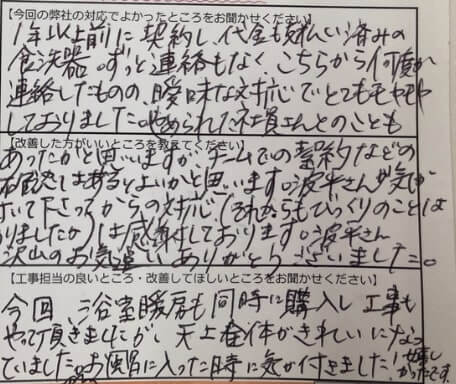 【今回の弊社の対応でよかったところをお聞かせください】
1年以上前に契約し、代金も支払い済みの
食洗器。ずっと連絡もなく、こちらから何度か
連絡したものの、曖昧な対応でとてもモヤモヤ
しておりました。やめられた社員さんとのことも
【改善した方がいいところを教えてください】
あったかと思いますが、チームでの契約などの
確認はあるとよいかと思います。波平さんが気が
付いて下さってからの対応（それからもびっくりのことは
ありましたが）は感謝しております。波平さん
沢山のお気遣いありがとうございました。
【工事担当の良いところ・改善してほしいところをお聞かせください】
今回、浴室暖房も同時に購入し工事も
やって頂きましたが、天上全体がきれいになっ
ていました。お風呂に入った時に気が付きました！嬉し
かったです。